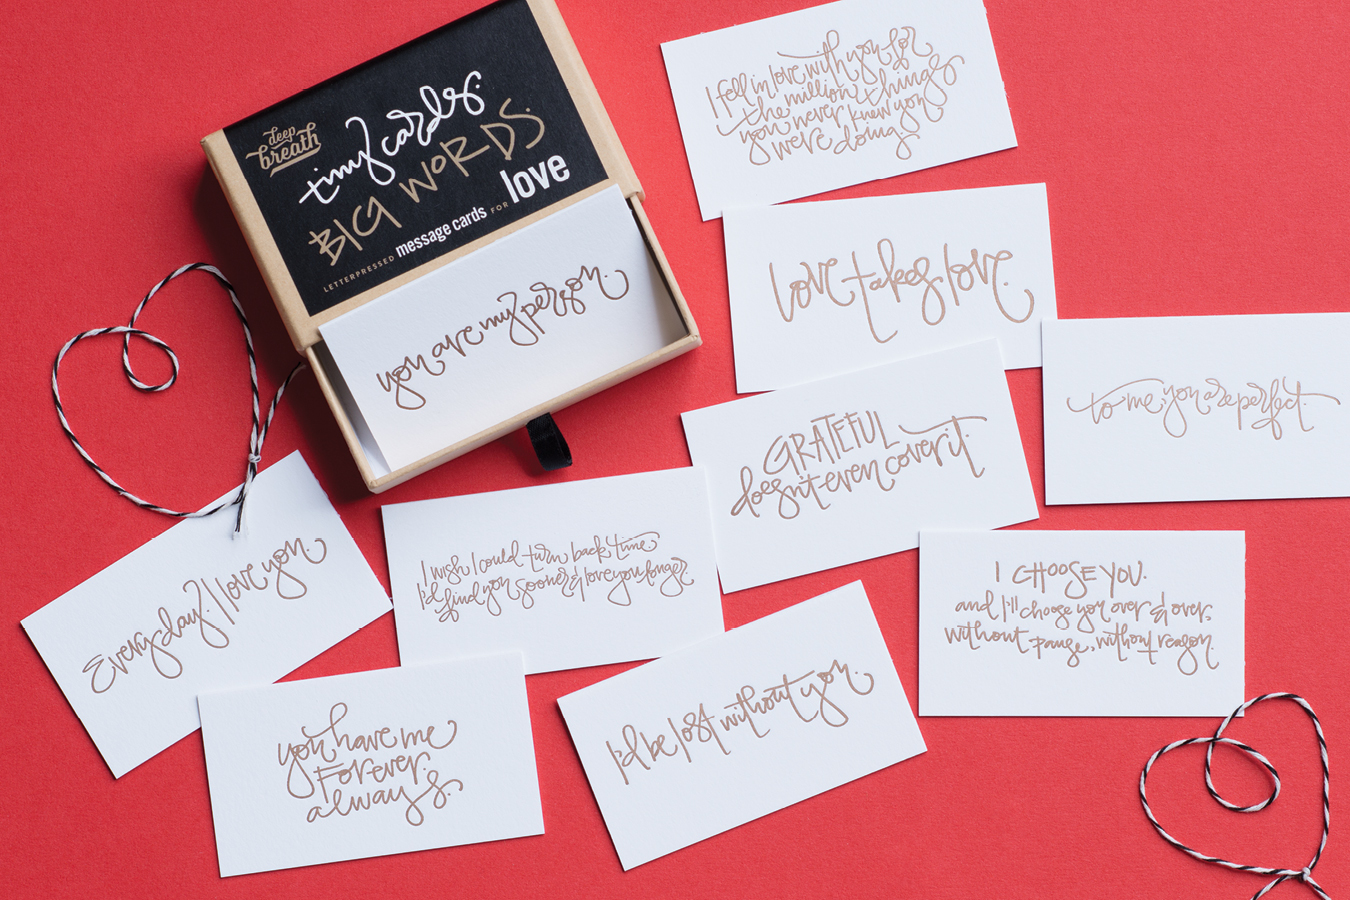 deep
breath
tiny cards.
BIG WORDS.
LETTERPRESSED message cards FOR love
you are my person.
I fell in love with you for
the million things
you never knew you
were doing.
love takes love.
to me, you are perfect.
GRATEFUL
doesn't even cover it
I wish I could turn back time
I'd find you sooner & love you longer
I CHOOSE YOU.
and I'll choose you over & over,
without pause, without reason.
Every day? I love you.
you have me
Forever.
always.
I'd be lost without you.